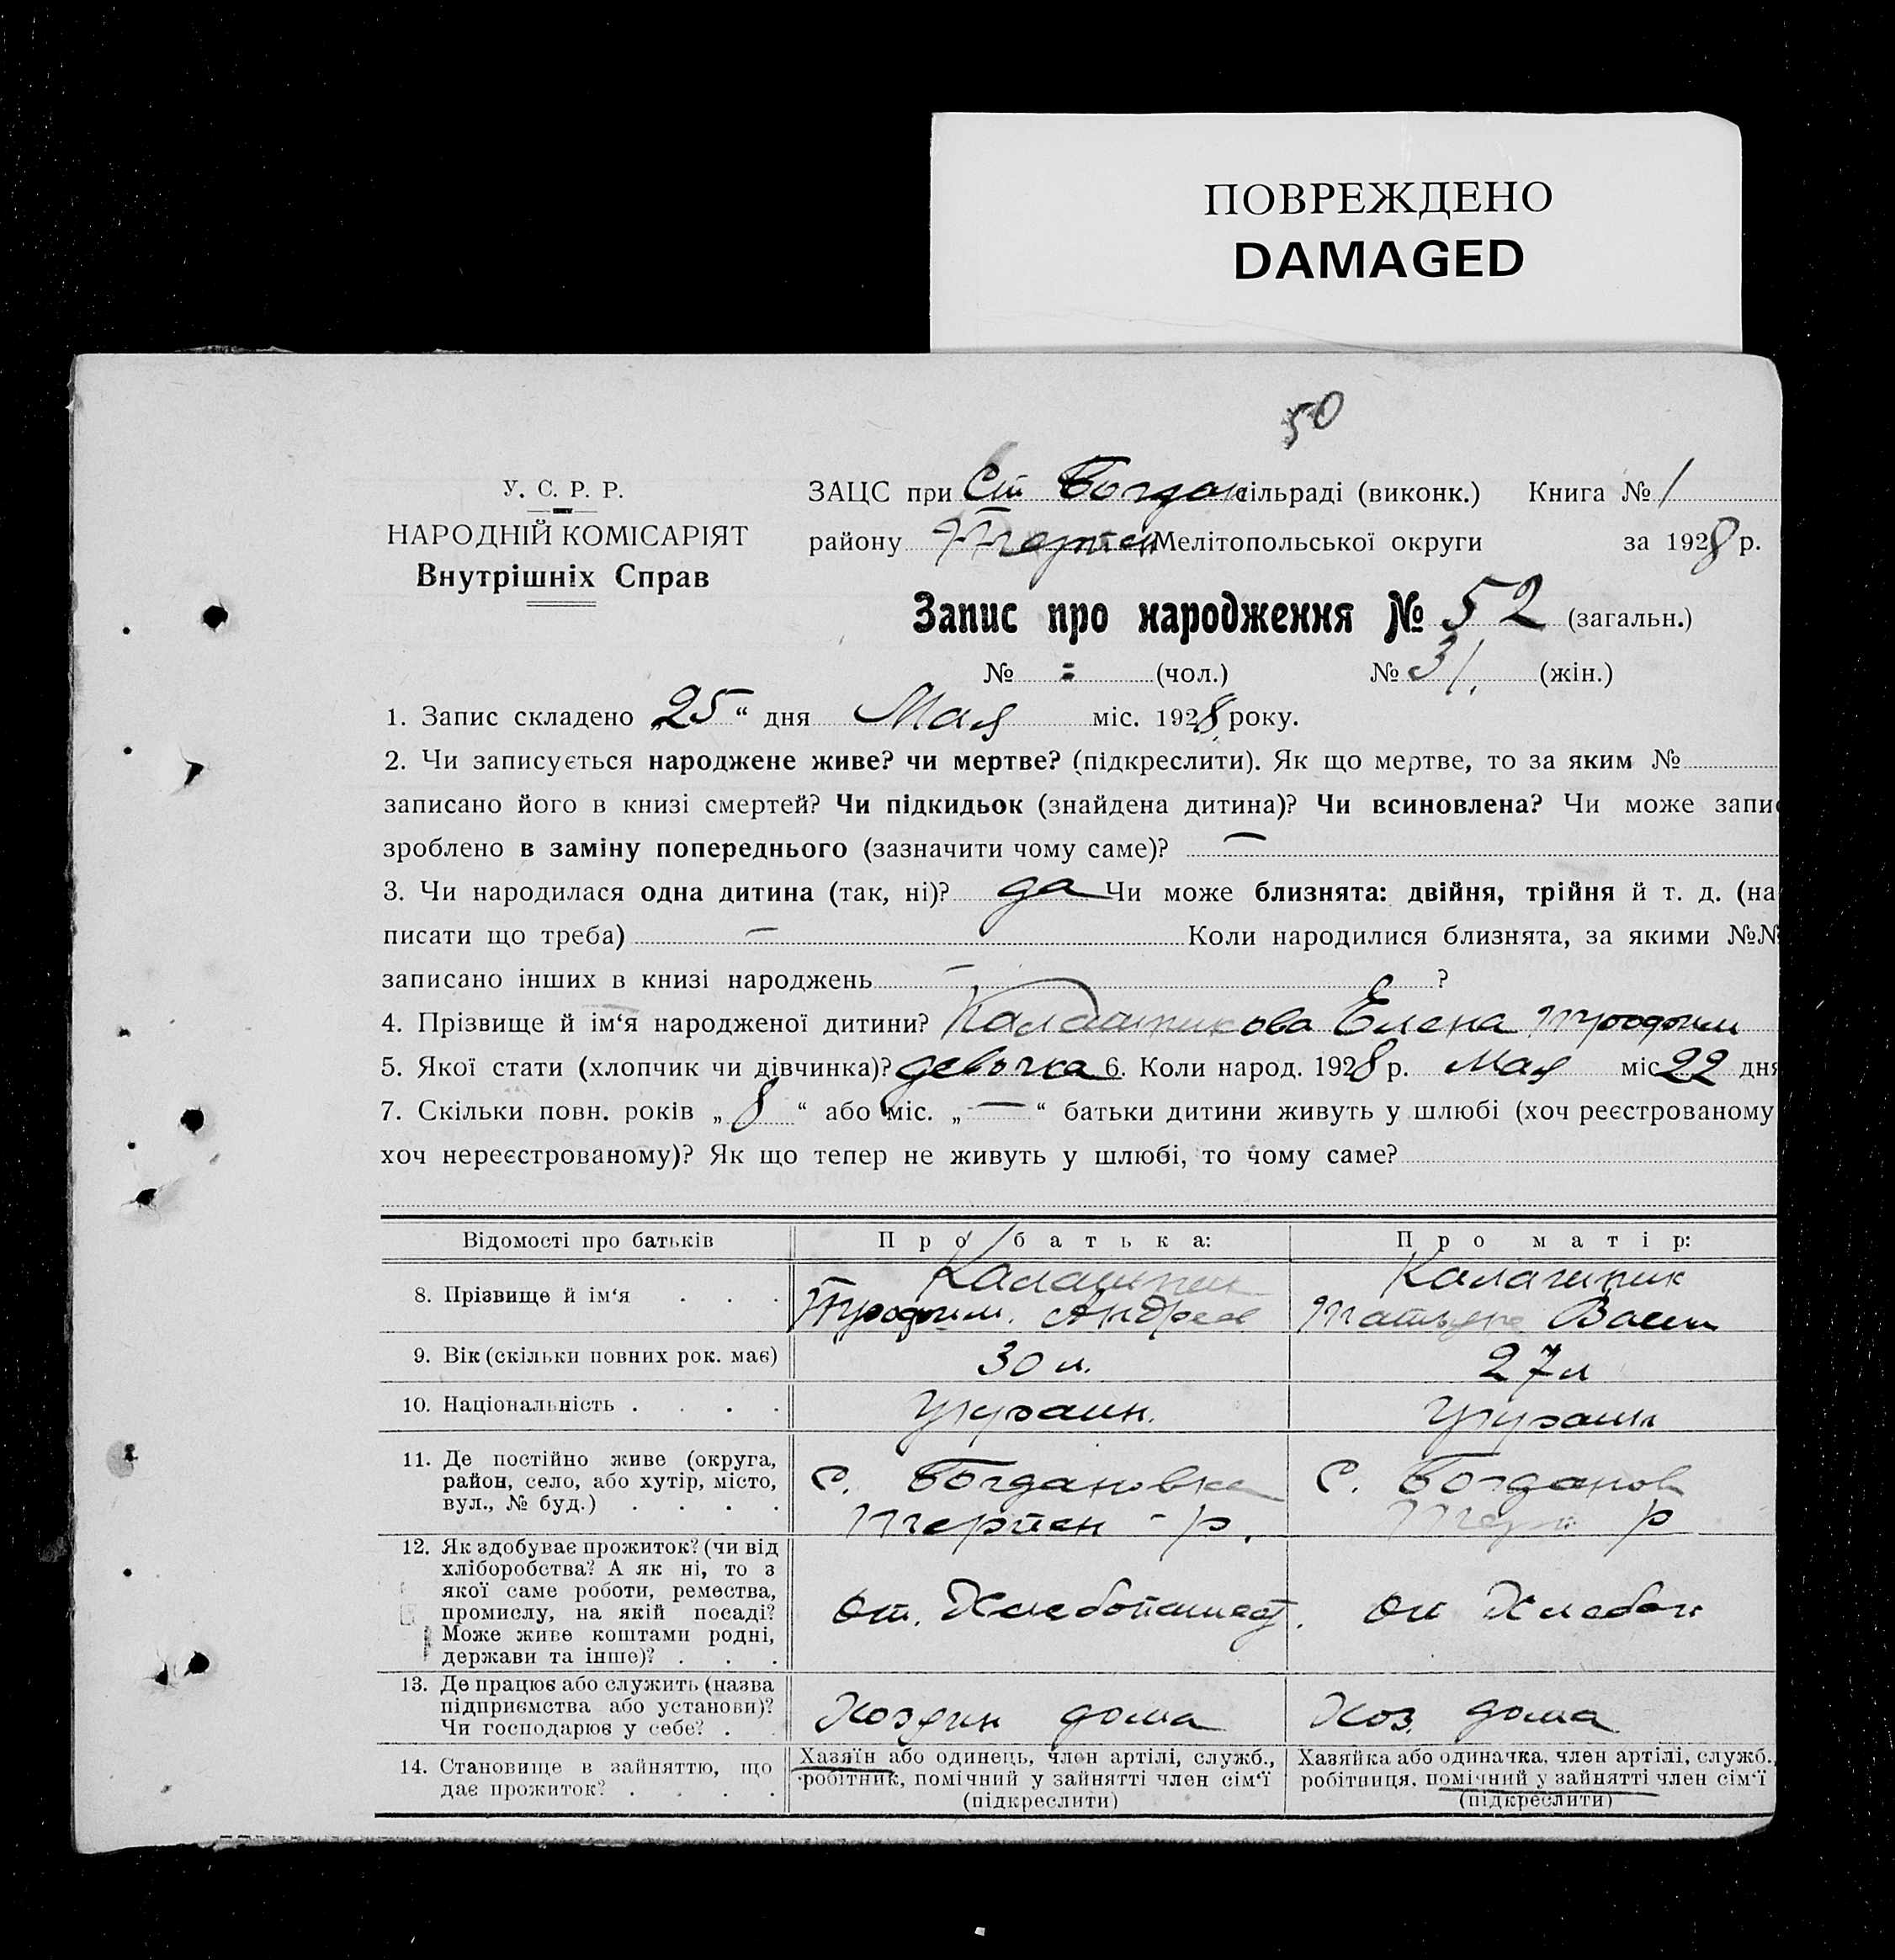 ПОВРЕЖДЕНО
DAMAGED
50
У. С. Р. Р.
НАРОДНІЙ КОМІСАРІЯТ
Внутрішніх Справ
ЗАЦС при Ст Богдан сільраді (виконк.) Книга № 1
району Терпен Мелітопольської округи за 1928 р.
Запис про народження № 52 (загальн.)
№ = (чол.) № 31. (жін.)
1. Запис складено „25“ дня Мая міс. 1928 року.
2. Чи записується народжене живе? чи мертве? (підкреслити). Як що мертве, то за яким №
записано його в книзі смертей? Чи підкидьок (знайдена дитина)? Чи всиновлена? Чи може запис
зроблено в заміну попереднього (зазначити чому саме)? —
3. Чи народилася одна дитина (так, ні)? да Чи може близнята: двійня, трійня й т. д. (на
писати що треба) — Коли народилися близнята, за якими №№
записано інших в книзі народжень — ?
4. Прізвище й ім‘я народженої дитини? Калашникова Елена Трофим
5. Якої стати (хлопчик чи дівчинка)? девочка 6. Коли народ. 1928 р. Мая міс 22 дня
7. Скільки повн. років „ 8 “ або міс. „ — “ батьки дитини живуть у шлюбі (хоч реєстрованому
хоч нереєстрованому)? Як що тепер не живуть у шлюбі, то чому саме?
Відомості про батьків Про батька: Про матір:
8. Прізвище й ім‘я . . . Калашник Трофим. Андрее Калашник Татьяна Васи
9. Вік (скільки повних рок. має) 30 л. 27 л
10. Національність . . . . Украин. Украин
11. Де постійно живе (округа,
район, село, або хутір, місто,
вул., № буд.) . . . .
С. Богдановка
Терпен - р.
С. Богданов
Терп р
12. Як здобуває прожиток? (чи від
хліборобства? А як ні, то з
якої саме роботи, ремества,
промислу, на якій посаді?
Може живе коштами родні,
держави та інше)? . . .
от. Хлебопашест.
от Хлебоп
13. Де працює або служить (назва
підприємства або установи)?
Чи господарює у себе? .
Хозяин дома
Хоз. дома
14. Становище в зайняттю, що
дає прожиток? . . . .
Хазяїн або одинець, член артілі, служб.,
робітник, помічний у зайнятті член сім‘ї
(підкреслити)
Хазяйка або одиначка, член артілі, служб.,
робітниця, помічний у зайнятті член сім‘ї
(підкреслити)